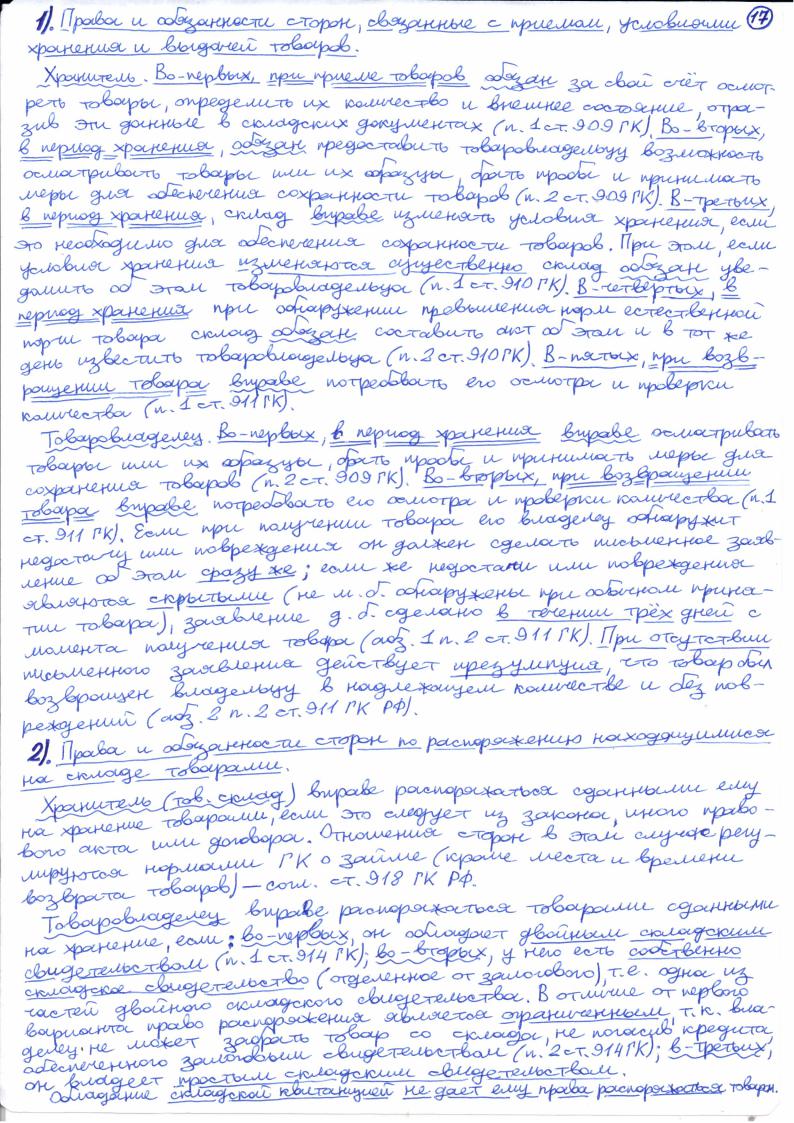 1). Права и обязанности сторон, связанные с приемом, условиями 17
хранения и выдачей товаров.
Хранитель. Во-первых, при приеме товаров обязан за свой счёт осмот-
реть товары, определить их количество и внешнее состояние, отра-
зив эти данные в складских документах (п. 1 ст. 909 ГК). Во-вторых,
в период хранения, обязан предоставить товаровладельцу возможность
осматривать товары или их образцы, брать пробы и принимать
меры для обеспечения сохранности товаров (п. 2 ст. 909 ГК). В-третьих,
в период хранения, склад вправе изменять условия хранения, если
это необходимо для обеспечения сохранности товаров. При этом, если
условия хранения изменяются существенно склад обязан уве-
домить об этом товаровладельца (п. 1 ст. 910 ГК). В-четвёртых, в
период хранения при обнаружении превышения норм естественной
порчи товара склад обязан составить акт об этом и в тот же
день известить товаровладельца (п. 2 ст. 910 ГК). В-пятых, при возв-
ращении товара вправе потребовать его осмотра и проверки
количества (п. 1 ст. 911 ГК).
Товаровладелец. Во-первых, в период хранения вправе осматривать
товары или их образцы, брать пробы и принимать меры для
сохранения товаров (п. 2 ст. 909 ГК). Во-вторых, при возвращении
товара вправе потребовать его осмотра и проверки количества (п. 1
ст. 911 ГК). Если при получении товара его владелец обнаружит
недостачу или повреждения он должен сделать письменное заяв-
ление об этом сразу же; если же недостачи или повреждения
являются скрытыми (не м. б. обнаружены при обычном приня-
тии товара), заявление д. б. сделано в течении трёх дней с
момента получения товара (абз. 1 п. 2 ст. 911 ГК). При отсутствии
письменного заявления действует презумпция, что товар был
возвращен владельцу в надлежащем количестве и без пов-
реждений (абз. 2 п. 2 ст. 911 ГК РФ).
2). Права и обязанности сторон по распоряжению находящимися
на складе товарами.
Хранитель (тов. склад) вправе распоряжаться сданными ему
на хранение товарами, если это следует из закона, иного право-
вого акта или договора. Отношения сторон в этом случае регу-
лируются нормами ГК о займе (кроме места и времени
возврата товаров) — согл. ст. 918 ГК РФ.
Товаровладелец вправе распоряжаться товарами сданными
на хранение, если: во-первых, он обладает двойным складским
свидетельством (п. 1 ст. 914 ГК); во-вторых, у него есть собственно
складское свидетельство (отделенное от залогового), т.е. одна из
частей двойного складского свидетельства. В отличие от первого
варианта право распоряжения является ограниченным, т.к. вла-
делец не может забрать товар со склада, не погасив кредита,
обеспеченного залоговым свидетельством (п. 2 ст. 914 ГК); в-третьих,
он владеет простым складским свидетельством.
Обладание складской квитанцией не дает ему права распоряжаться товаром.